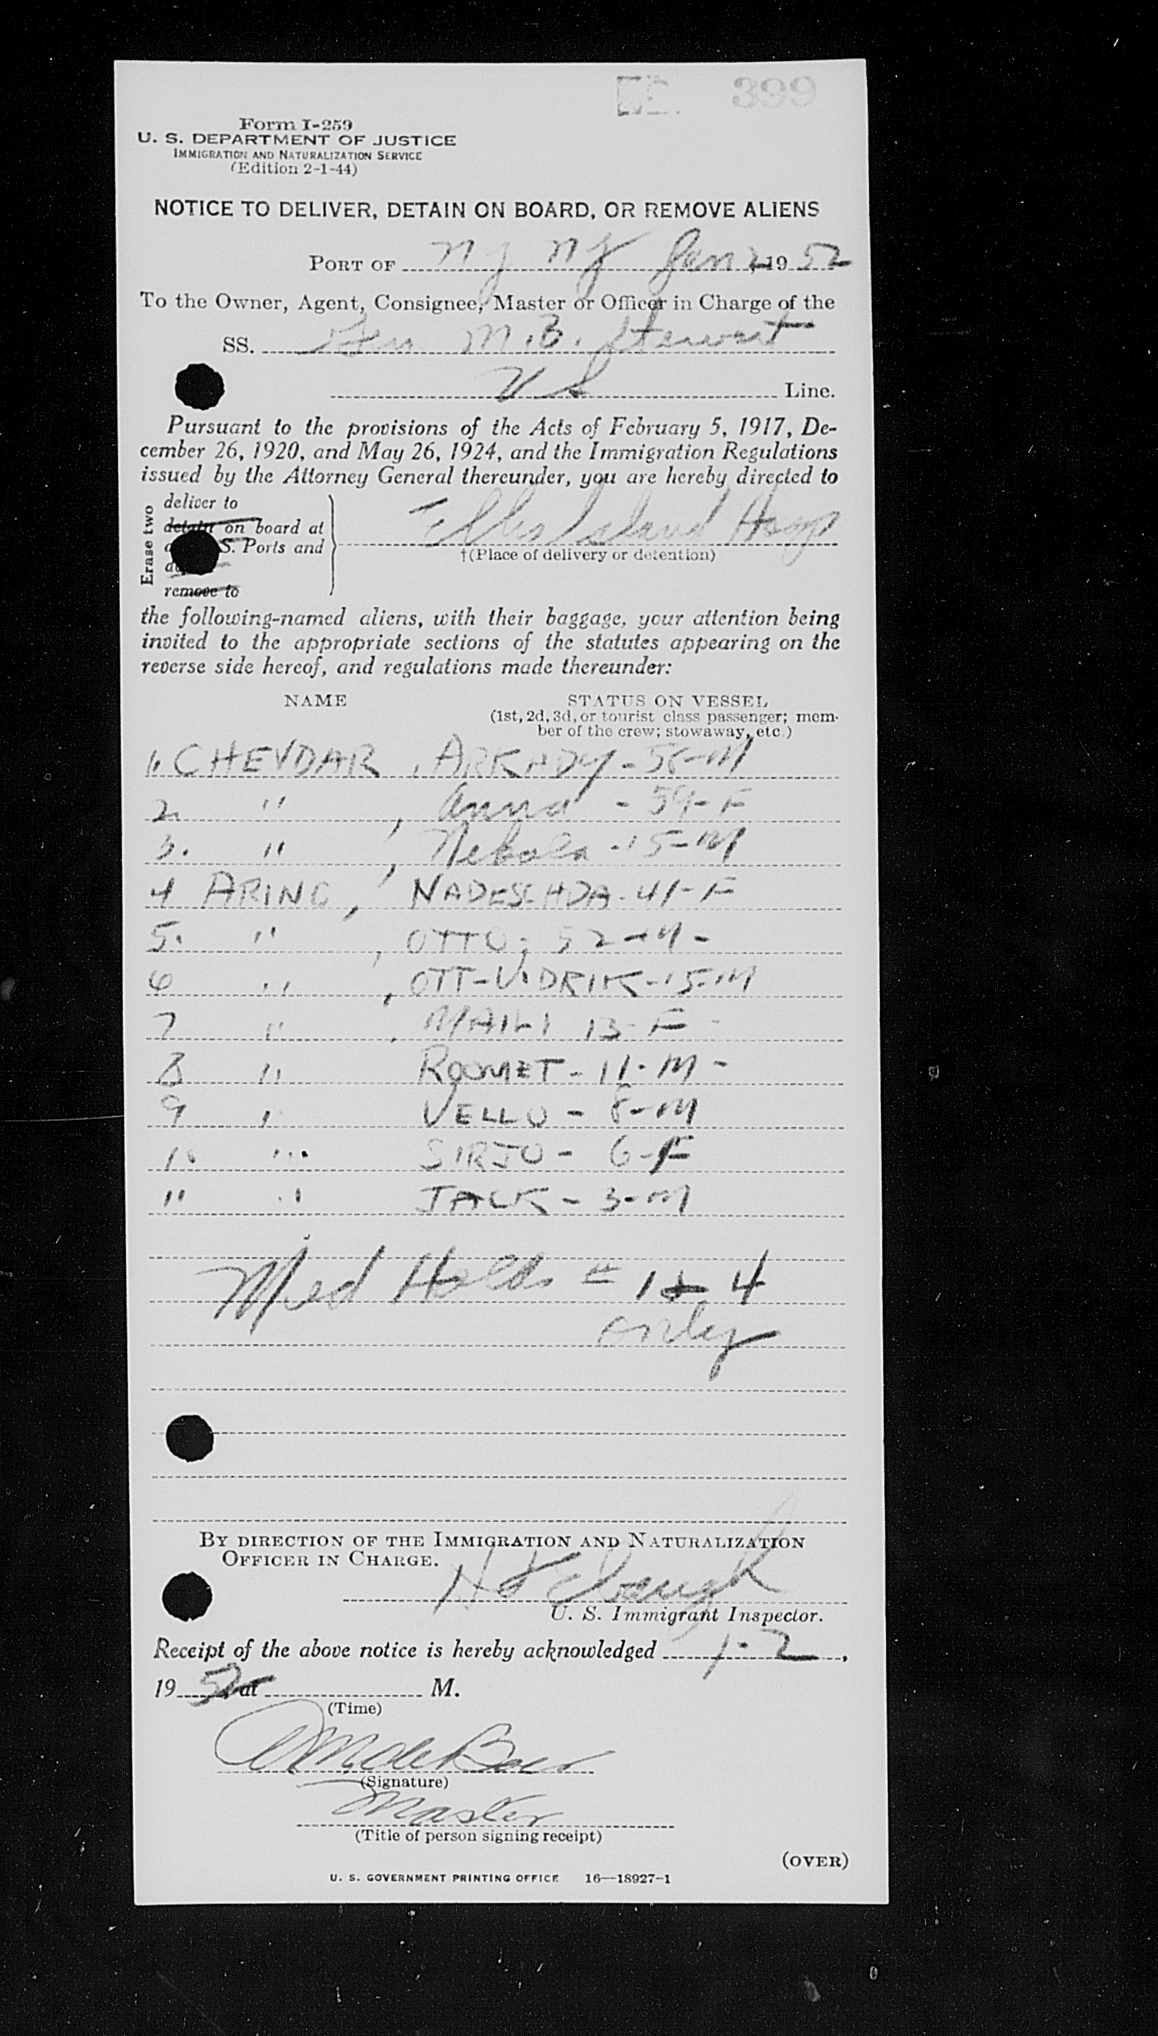 399
Form I-259
U. S. DEPARTMENT OF JUSTICE
IMMIGRATION AND NATURALIZATION SERVICE
(Edition 2-1-44)
NOTICE TO DELIVER, DETAIN ON BOARD, OR REMOVE ALIENS
PORT OF NY NY Jan 2 1952
To the Owner, Agent, Consignee, Master or Officer in Charge of the
SS. Gen M.B. Stewart
US Line.
Pursuant to the provisions of the Acts of February 5, 1917, De-
cember 26, 1920, and May 26, 1924, and the Immigration Regulations
issued by the Attorney General thereunder, you are hereby directed to
Erase two
deliver to
detain on board at
S. Ports and
remove to
Ellis Island Hosp
†(Place of delivery or detention)
the following-named aliens, with their baggage, your attention being
invited to the appropriate sections of the statutes appearing on the
reverse side hereof, and regulations made thereunder:
NAME STATUS ON VESSEL
(1st, 2d, 3d, or tourist class passenger; mem-
ber of the crew; stowaway, etc.)
1. CHEVDAR, ARKADY - 58-M
2. " , Anna - 59-F
3. " , Nekola - 15-M
4 ARING, NADESCHDA - 41-F
5. " , OTTO, 52-M-
6 " , OTT-UDRIK-15-M
7 " , MAILI 13-F-
8 " ROOMET - 11-M-
9 " VELLO - 8-M
10 " SIRJO - 6-F
11 " JACK - 3-M
Med Holds # 1 + 4
only
BY DIRECTION OF THE IMMIGRATION AND NATURALIZATION
OFFICER IN CHARGE.
U. S. Immigrant Inspector.
Receipt of the above notice is hereby acknowledged 1-2,
1952 at M.
(Time)
(Signature)
Master
(Title of person signing receipt)
(OVER)
U. S. GOVERNMENT PRINTING OFFICE 16—18927-1